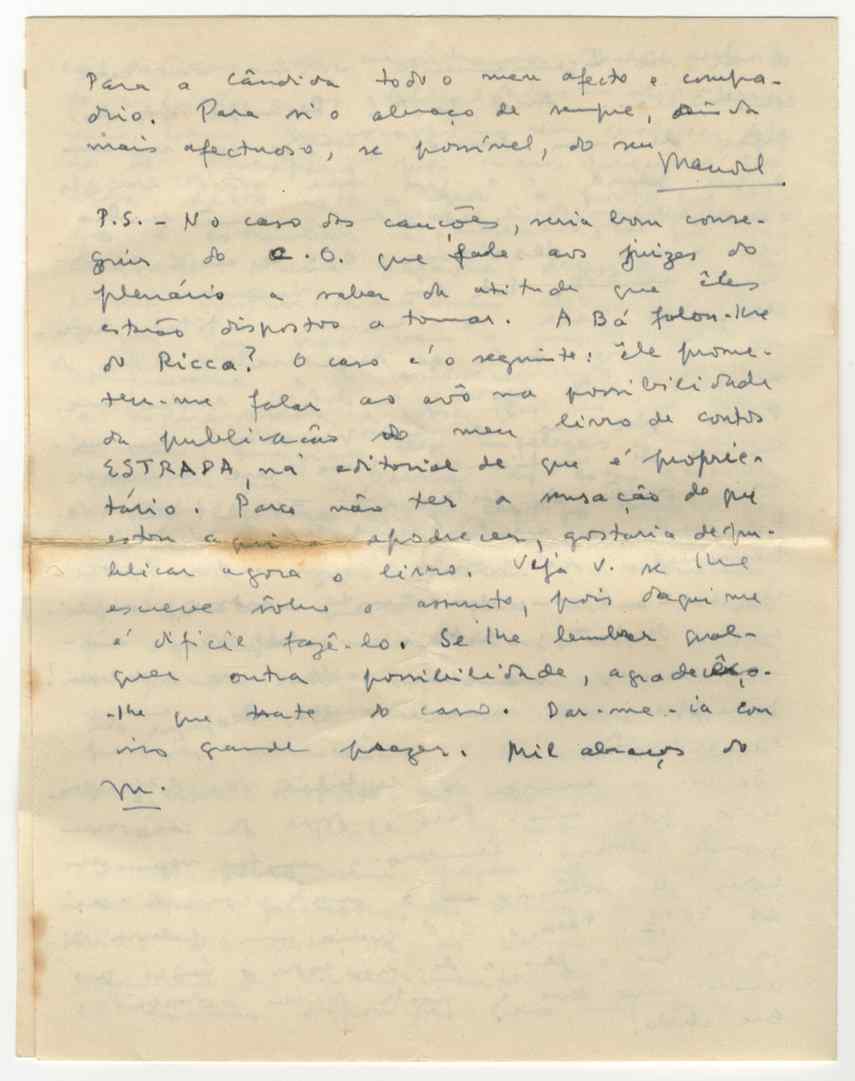 Para a Cândida todo o meu afecto e compa-
drio. Para si o abraço de sempre, ainda
mais afectuoso, se possível, do seu
Manuel
P.S. - No caso das canções, seria bom conse-
guir do C.O. que fale aos juizes do
plenário a saber da atitude que êles
estarão dispostos a tomar. A Bá falou-lhe
do Ricca? O caso é o seguinte: êle prome-
teu-me falar ao avô na possibilidade
da publicação do meu livro de contos
ESTRADA, na editorial de que é proprie-
tário. Para não ter a sensação de que
estou aqui a apodrecer, gostaria de pu-
blicar agora o livro. Veja V. se lhe
escreve sôbre o assunto, pois daqui me
é difícil fazê-lo. Se lhe lembrar qual-
quer outra possibilidade, agradeço-
-lhe que trate do caso. Dar-me-ia com
isso grande prazer. Mil abraços do
M.